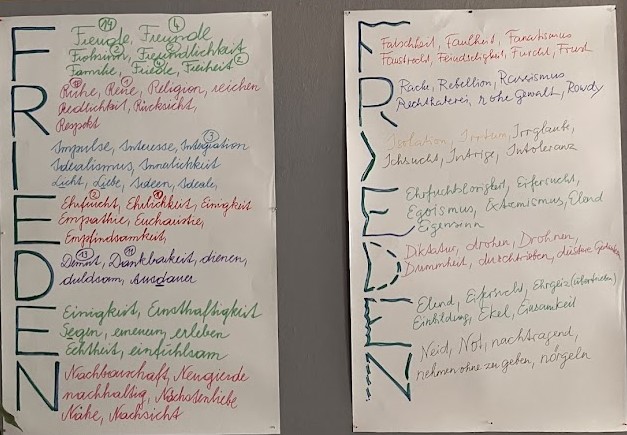 FRIEDEN
19 4
Freude, Freunde
Frohsinn, Freundlichkeit
Familie, Friede, Freiheit
Ruhe, Reue, Religion, reichen
Redlichkeit, Rücksicht,
Respekt
Impulse, Interesse, Integration
Idealismus, Innerlichkeit
Licht, Liebe, Ideen, Ideale,
Ehrfurcht, Ehrlichkeit, Einigkeit
Empathie, Eucharistie,
Empfindsamkeit,
Demut, Dankbarkeit, dienen,
duldsam, Ausdauer
Einigkeit, Ernsthaftigkeit
Segen, erneuen, erleben
Echtheit, einfühlsam
Nachbarschaft, Neugierde
nachhaltig, Nächstenliebe
Nähe, Nachsicht
FRIEDEN
Falschheit, Faulheit, Fanatismus
Faustrecht, Feindseligkeit, Furcht, Frust
Rache, Rebellion, Rassismus
Rechthaberei, rohe Gewalt, Rowdy
Isolation, Irrtum, Irrglaube,
Ichsucht, Intrige, Intoleranz
Ehrfurchtlosigkeit, Eifersucht,
Egoismus, Extremismus, Elend
Eigensinn
Diktatur, drohen, Drohnen,
Dummheit, durchtrieben, düstere Gedanken
Elend, Eifersucht, Ehrgeiz (übertrieben)
Einbildung, Ekel, Einsamkeit
Neid, Not, nachtragend,
nehmen ohne zu geben, nörgeln